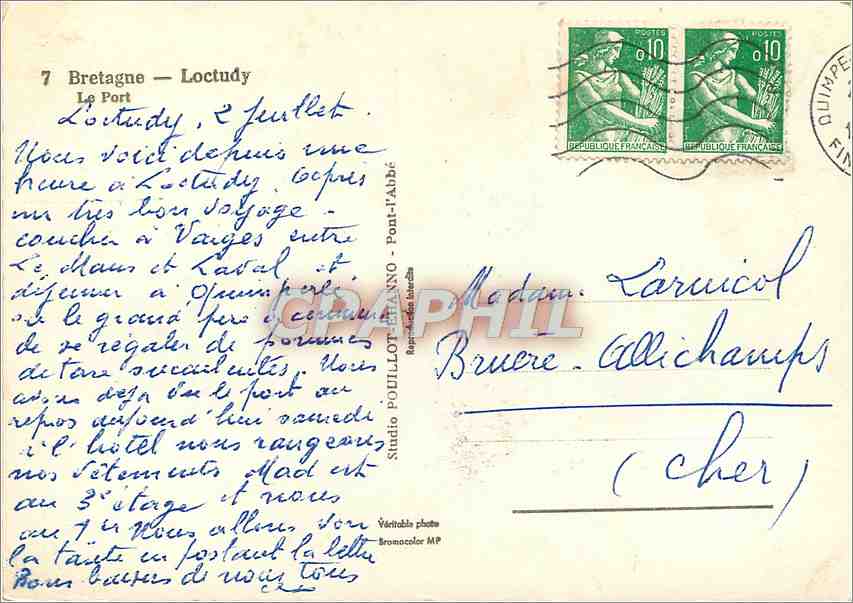 7 Bretagne — Loctudy
Le Port
Loctudy, 2 Juillet.
Nous voici depuis une
heure à Loctudy. Après
un très bon voyage -
coucher à Vaiges entre
Le Mans et Laval et
déjeuner à Quimperlé,
où le grand père a
de se régaler de pommes
de terre succulentes. Nous
avons déjà vu le port au
repos aujourd'hui samedi
à l'hôtel nous rangeons
nos vêtements Mad est
au 3e étage et nous
au 1er Nous allons voir
la tante en postant la lettre
Bons baisers de nous tous
Studio POUILLOT-EHANNO - Pont-l'Abbé
Reproduction Interdite
Véritable photo
Bromocolor MP
POSTES
0,10
REPUBLIQUE FRANÇAISE
POSTES
0,10
REPUBLIQUE FRANÇAISE
QUIMPE
FIN
Madame Larnicol
Bruère-Allichamps
(Cher)
CPAPHIL